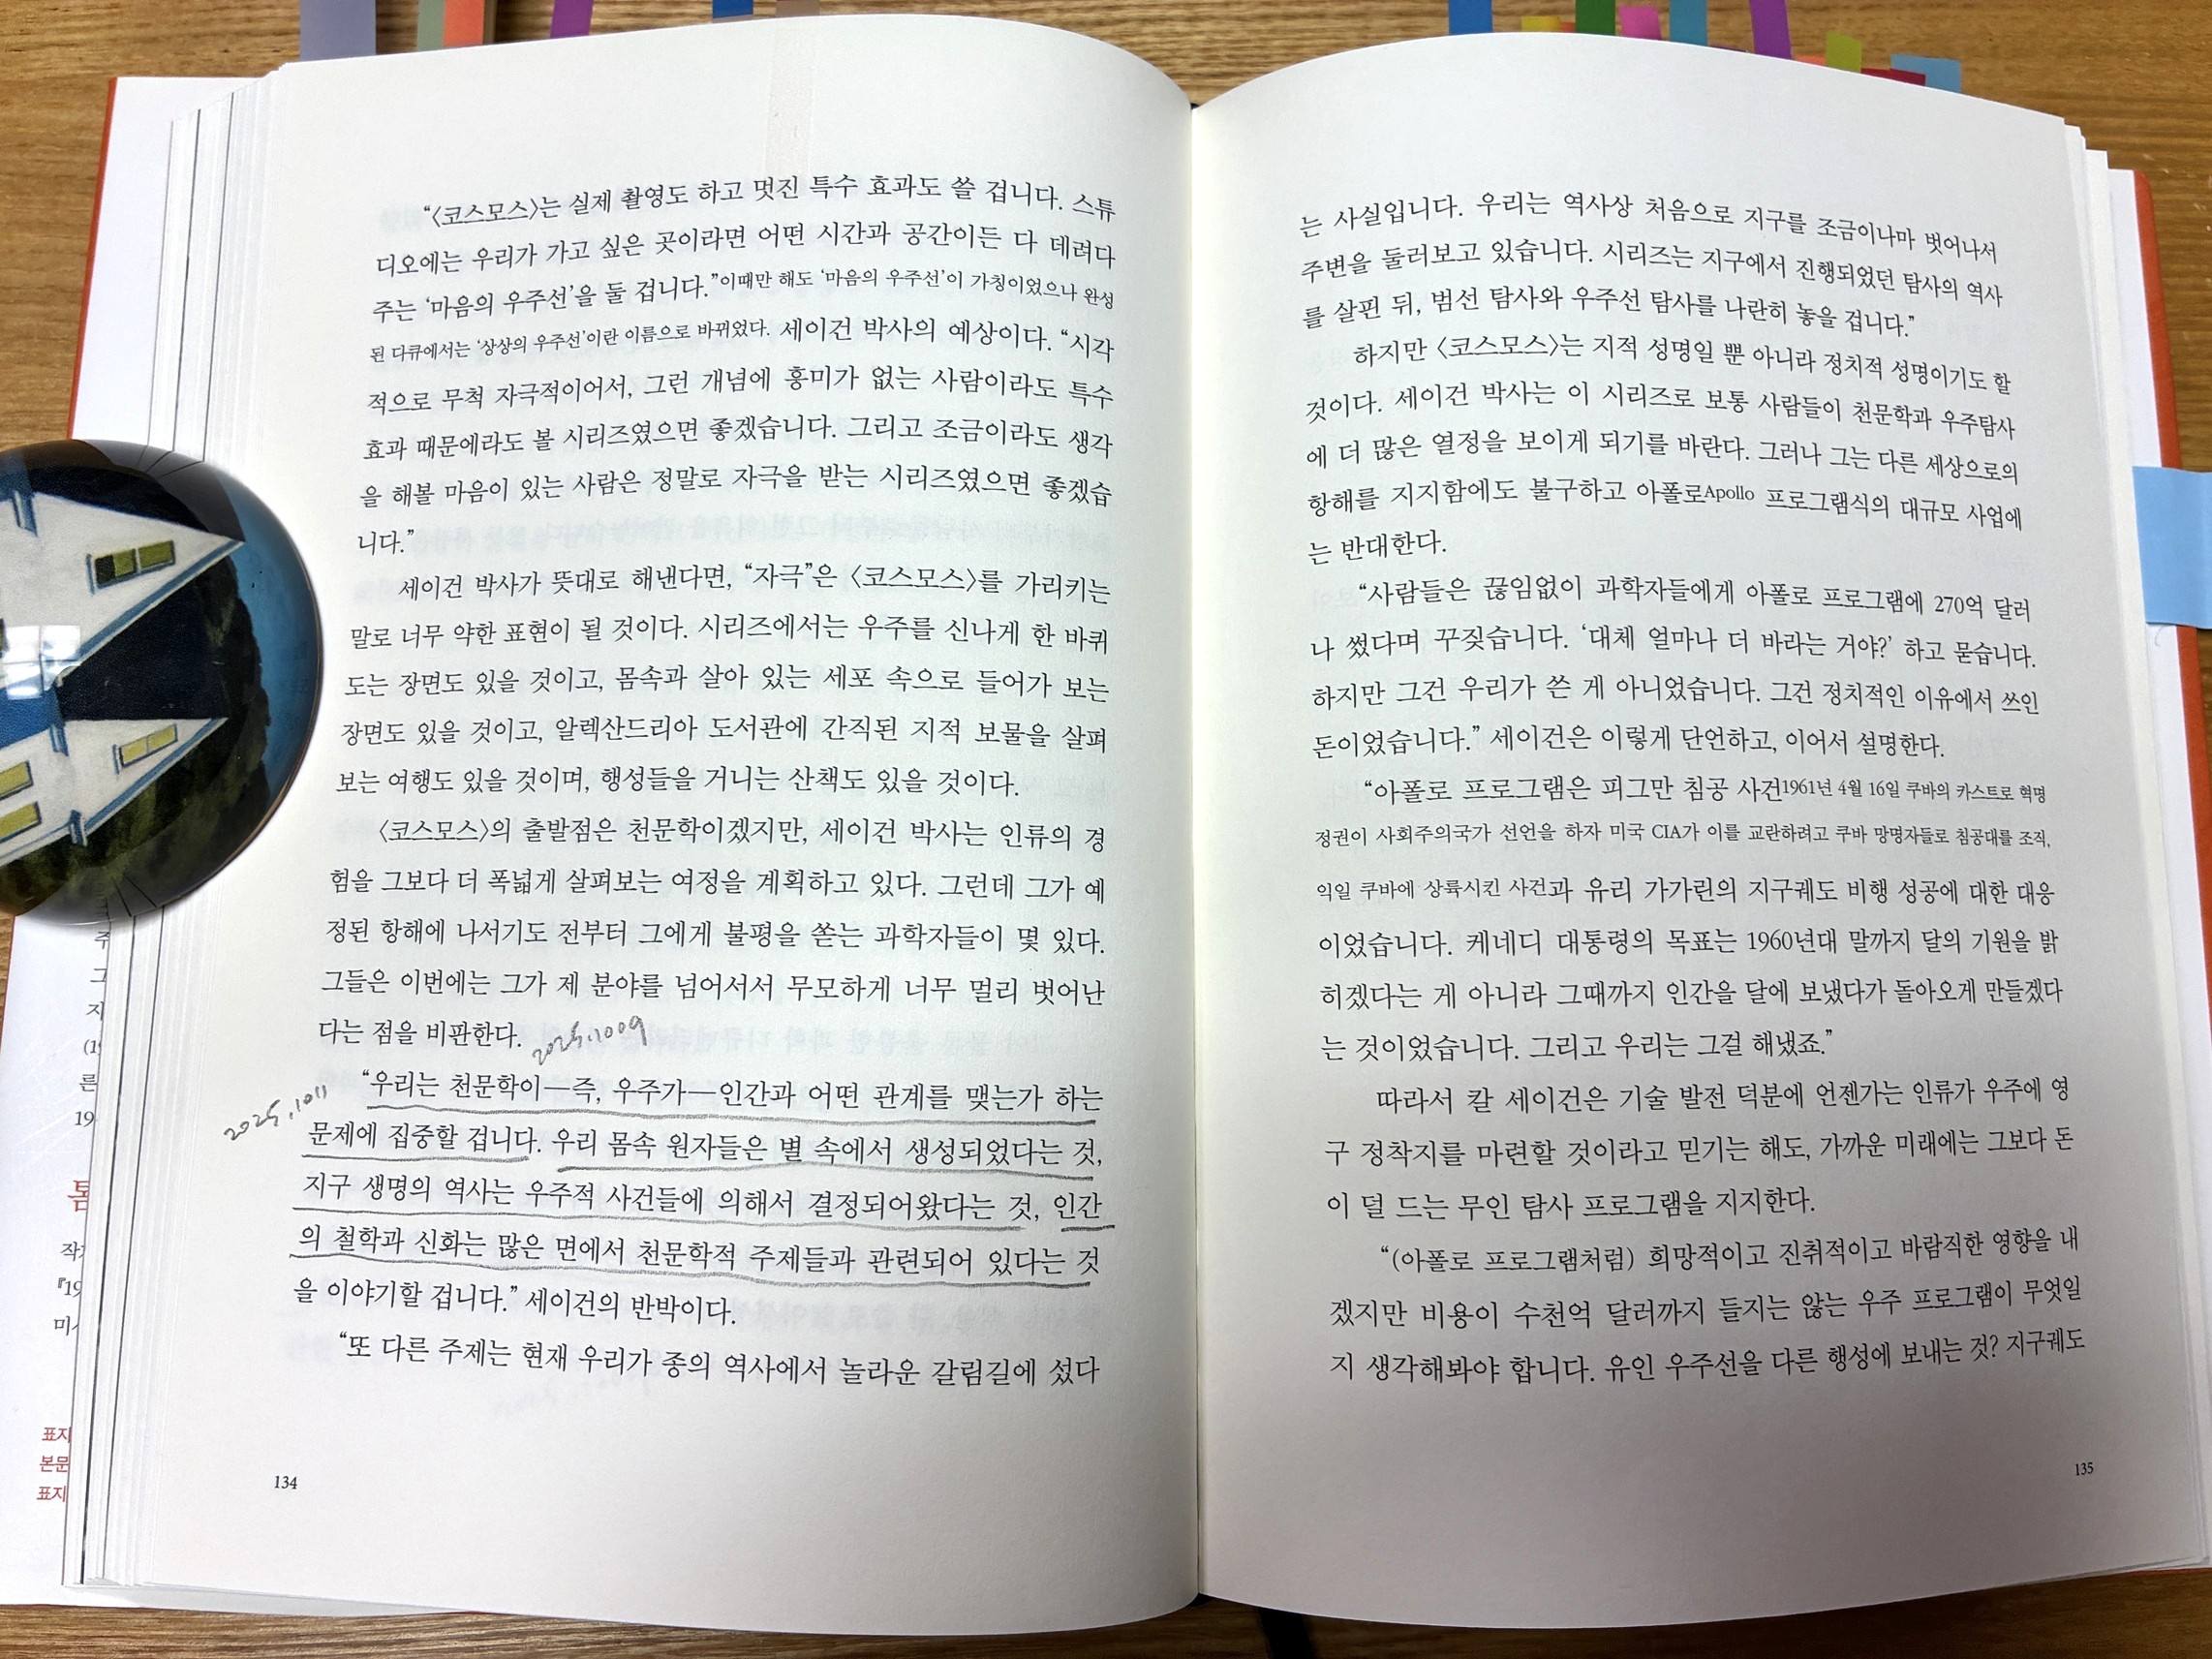 “〈코스모스〉는 실제 촬영도 하고 멋진 특수 효과도 쓸 겁니다. 스튜
디오에는 우리가 가고 싶은 곳이라면 어떤 시간과 공간이든 다 데려다
주는 ‘마음의 우주선’을 둘 겁니다.”이때만 해도 ‘마음의 우주선’이 가칭이었으나 완성
된 다큐에서는 ‘상상의 우주선’이란 이름으로 바뀌었다. 세이건 박사의 예상이다. “시각
적으로 무척 자극적이어서, 그런 개념에 흥미가 없는 사람이라도 특수
효과 때문에라도 볼 시리즈였으면 좋겠습니다. 그리고 조금이라도 생각
을 해볼 마음이 있는 사람은 정말로 자극을 받는 시리즈였으면 좋겠습
니다.”
세이건 박사가 뜻대로 해낸다면, “자극”은 〈코스모스〉를 가리키는
말로 너무 약한 표현이 될 것이다. 시리즈에서는 우주를 신나게 한 바퀴
도는 장면도 있을 것이고, 몸속과 살아 있는 세포 속으로 들어가 보는
장면도 있을 것이고, 알렉산드리아 도서관에 간직된 지적 보물을 살펴
보는 여행도 있을 것이며, 행성들을 거니는 산책도 있을 것이다.
〈코스모스〉의 출발점은 천문학이겠지만, 세이건 박사는 인류의 경
험을 그보다 더 폭넓게 살펴보는 여정을 계획하고 있다. 그런데 그가 예
정된 항해에 나서기도 전부터 그에게 불평을 쏟는 과학자들이 몇 있다.
그들은 이번에는 그가 제 분야를 넘어서서 무모하게 너무 멀리 벗어난
다는 점을 비판한다. 2025.1009
2025.1011
“우리는 천문학이—즉, 우주가—인간과 어떤 관계를 맺는가 하는
문제에 집중할 겁니다. 우리 몸속 원자들은 별 속에서 생성되었다는 것,
지구 생명의 역사는 우주적 사건들에 의해서 결정되어왔다는 것, 인간
의 철학과 신화는 많은 면에서 천문학적 주제들과 관련되어 있다는 것
을 이야기할 겁니다.” 세이건의 반박이다.
“또 다른 주제는 현재 우리가 종의 역사에서 놀라운 갈림길에 섰다
134
는 사실입니다. 우리는 역사상 처음으로 지구를 조금이나마 벗어나서
주변을 둘러보고 있습니다. 시리즈는 지구에서 진행되었던 탐사의 역사
를 살핀 뒤, 범선 탐사와 우주선 탐사를 나란히 놓을 겁니다.”
하지만 〈코스모스〉는 지적 성명일 뿐 아니라 정치적 성명이기도 할
것이다. 세이건 박사는 이 시리즈로 보통 사람들이 천문학과 우주탐사
에 더 많은 열정을 보이게 되기를 바란다. 그러나 그는 다른 세상으로의
항해를 지지함에도 불구하고 아폴로Apollo 프로그램식의 대규모 사업에
는 반대한다.
“사람들은 끊임없이 과학자들에게 아폴로 프로그램에 270억 달러
나 썼다며 꾸짖습니다. ‘대체 얼마나 더 바라는 거야?’ 하고 묻습니다.
하지만 그건 우리가 쓴 게 아니었습니다. 그건 정치적인 이유에서 쓰인
돈이었습니다.” 세이건은 이렇게 단언하고, 이어서 설명한다.
“아폴로 프로그램은 피그만 침공 사건1961년 4월 16일 쿠바의 카스트로 혁명
정권이 사회주의국가 선언을 하자 미국 CIA가 이를 교란하려고 쿠바 망명자들로 침공대를 조직,
익일 쿠바에 상륙시킨 사건과 유리 가가린의 지구궤도 비행 성공에 대한 대응
이었습니다. 케네디 대통령의 목표는 1960년대 말까지 달의 기원을 밝
히겠다는 게 아니라 그때까지 인간을 달에 보냈다가 돌아오게 만들겠다
는 것이었습니다. 그리고 우리는 그걸 해냈죠.”
따라서 칼 세이건은 기술 발전 덕분에 언젠가는 인류가 우주에 영
구 정착지를 마련할 것이라고 믿기는 해도, 가까운 미래에는 그보다 돈
이 덜 드는 무인 탐사 프로그램을 지지한다.
“(아폴로 프로그램처럼) 희망적이고 진취적이고 바람직한 영향을 내
겠지만 비용이 수천억 달러까지 들지는 않는 우주 프로그램이 무엇일
지 생각해봐야 합니다. 유인 우주선을 다른 행성에 보내는 것? 지구궤도
135